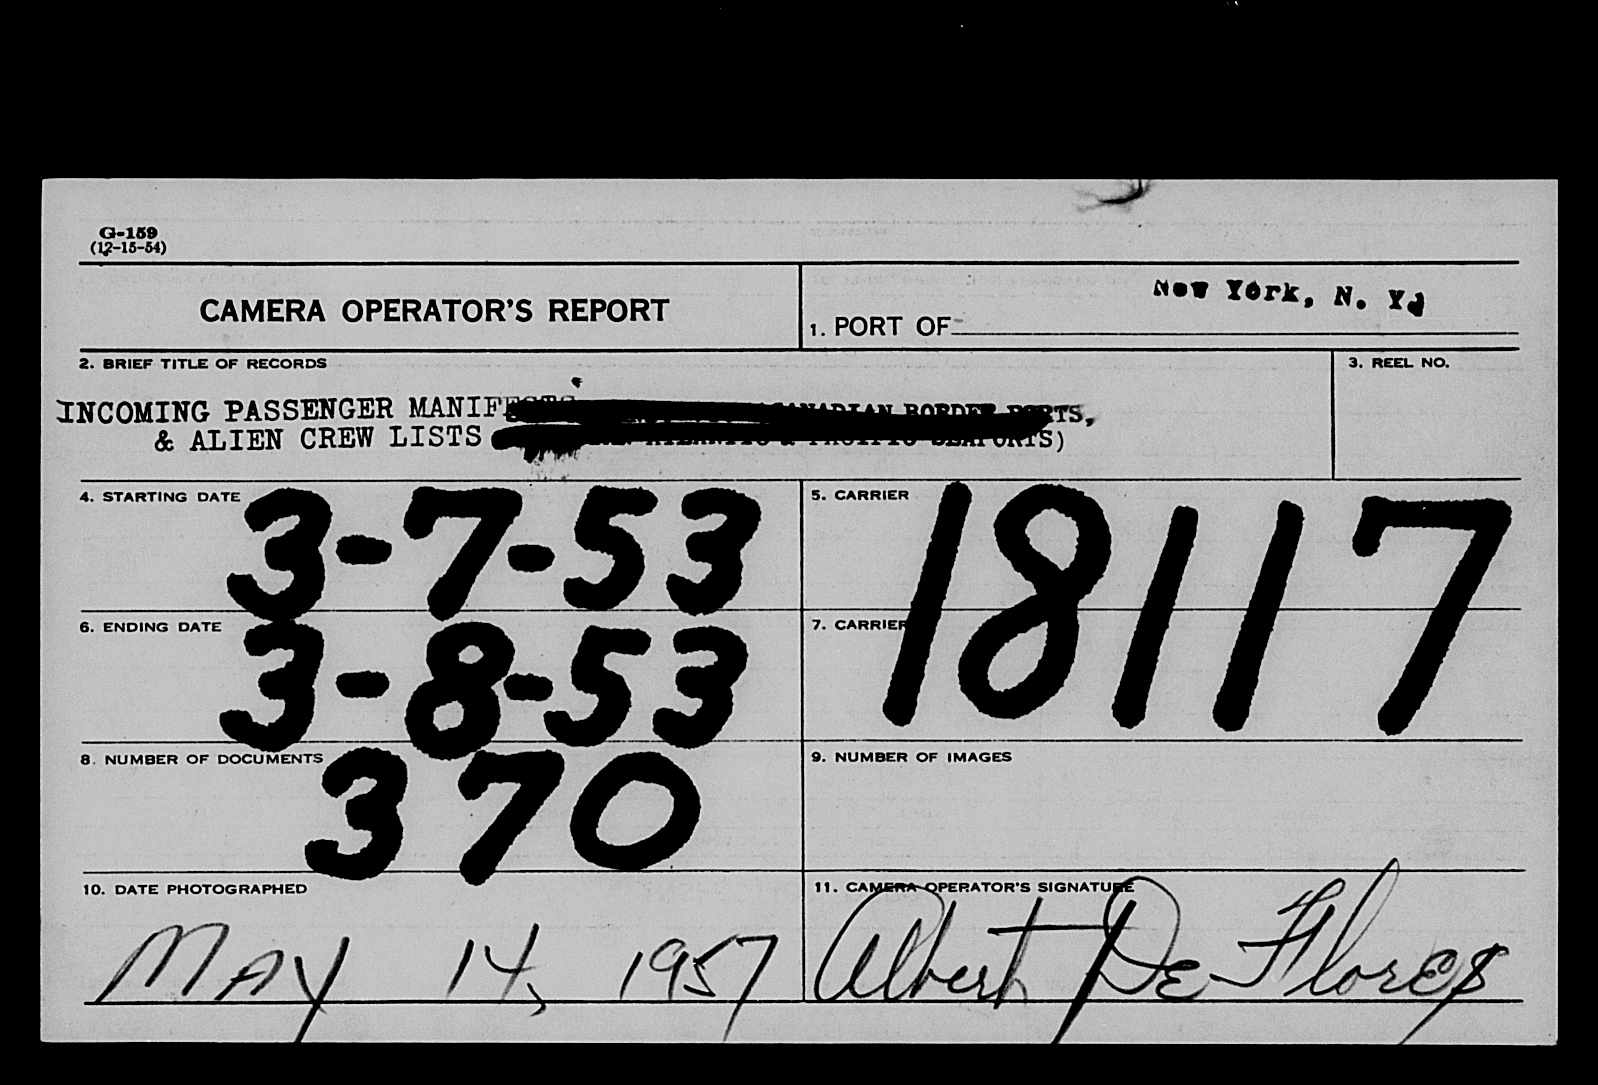 G-159
(12-15-54)
CAMERA OPERATOR'S REPORT
1. PORT OF New York, N. Y.
2. BRIEF TITLE OF RECORDS
3. REEL NO.
INCOMING PASSENGER MANIFESTS CANADIAN BORDER PORTS,
& ALIEN CREW LISTS ATLANTIC & PACIFIC SEAPORTS)
4. STARTING DATE 3-7-53
5. CARRIER 18117
6. ENDING DATE 3-8-53
7. CARRIER
8. NUMBER OF DOCUMENTS 370
9. NUMBER OF IMAGES
10. DATE PHOTOGRAPHED
11. CAMERA OPERATOR'S SIGNATURE
MAY 14, 1957
Albert De Flores